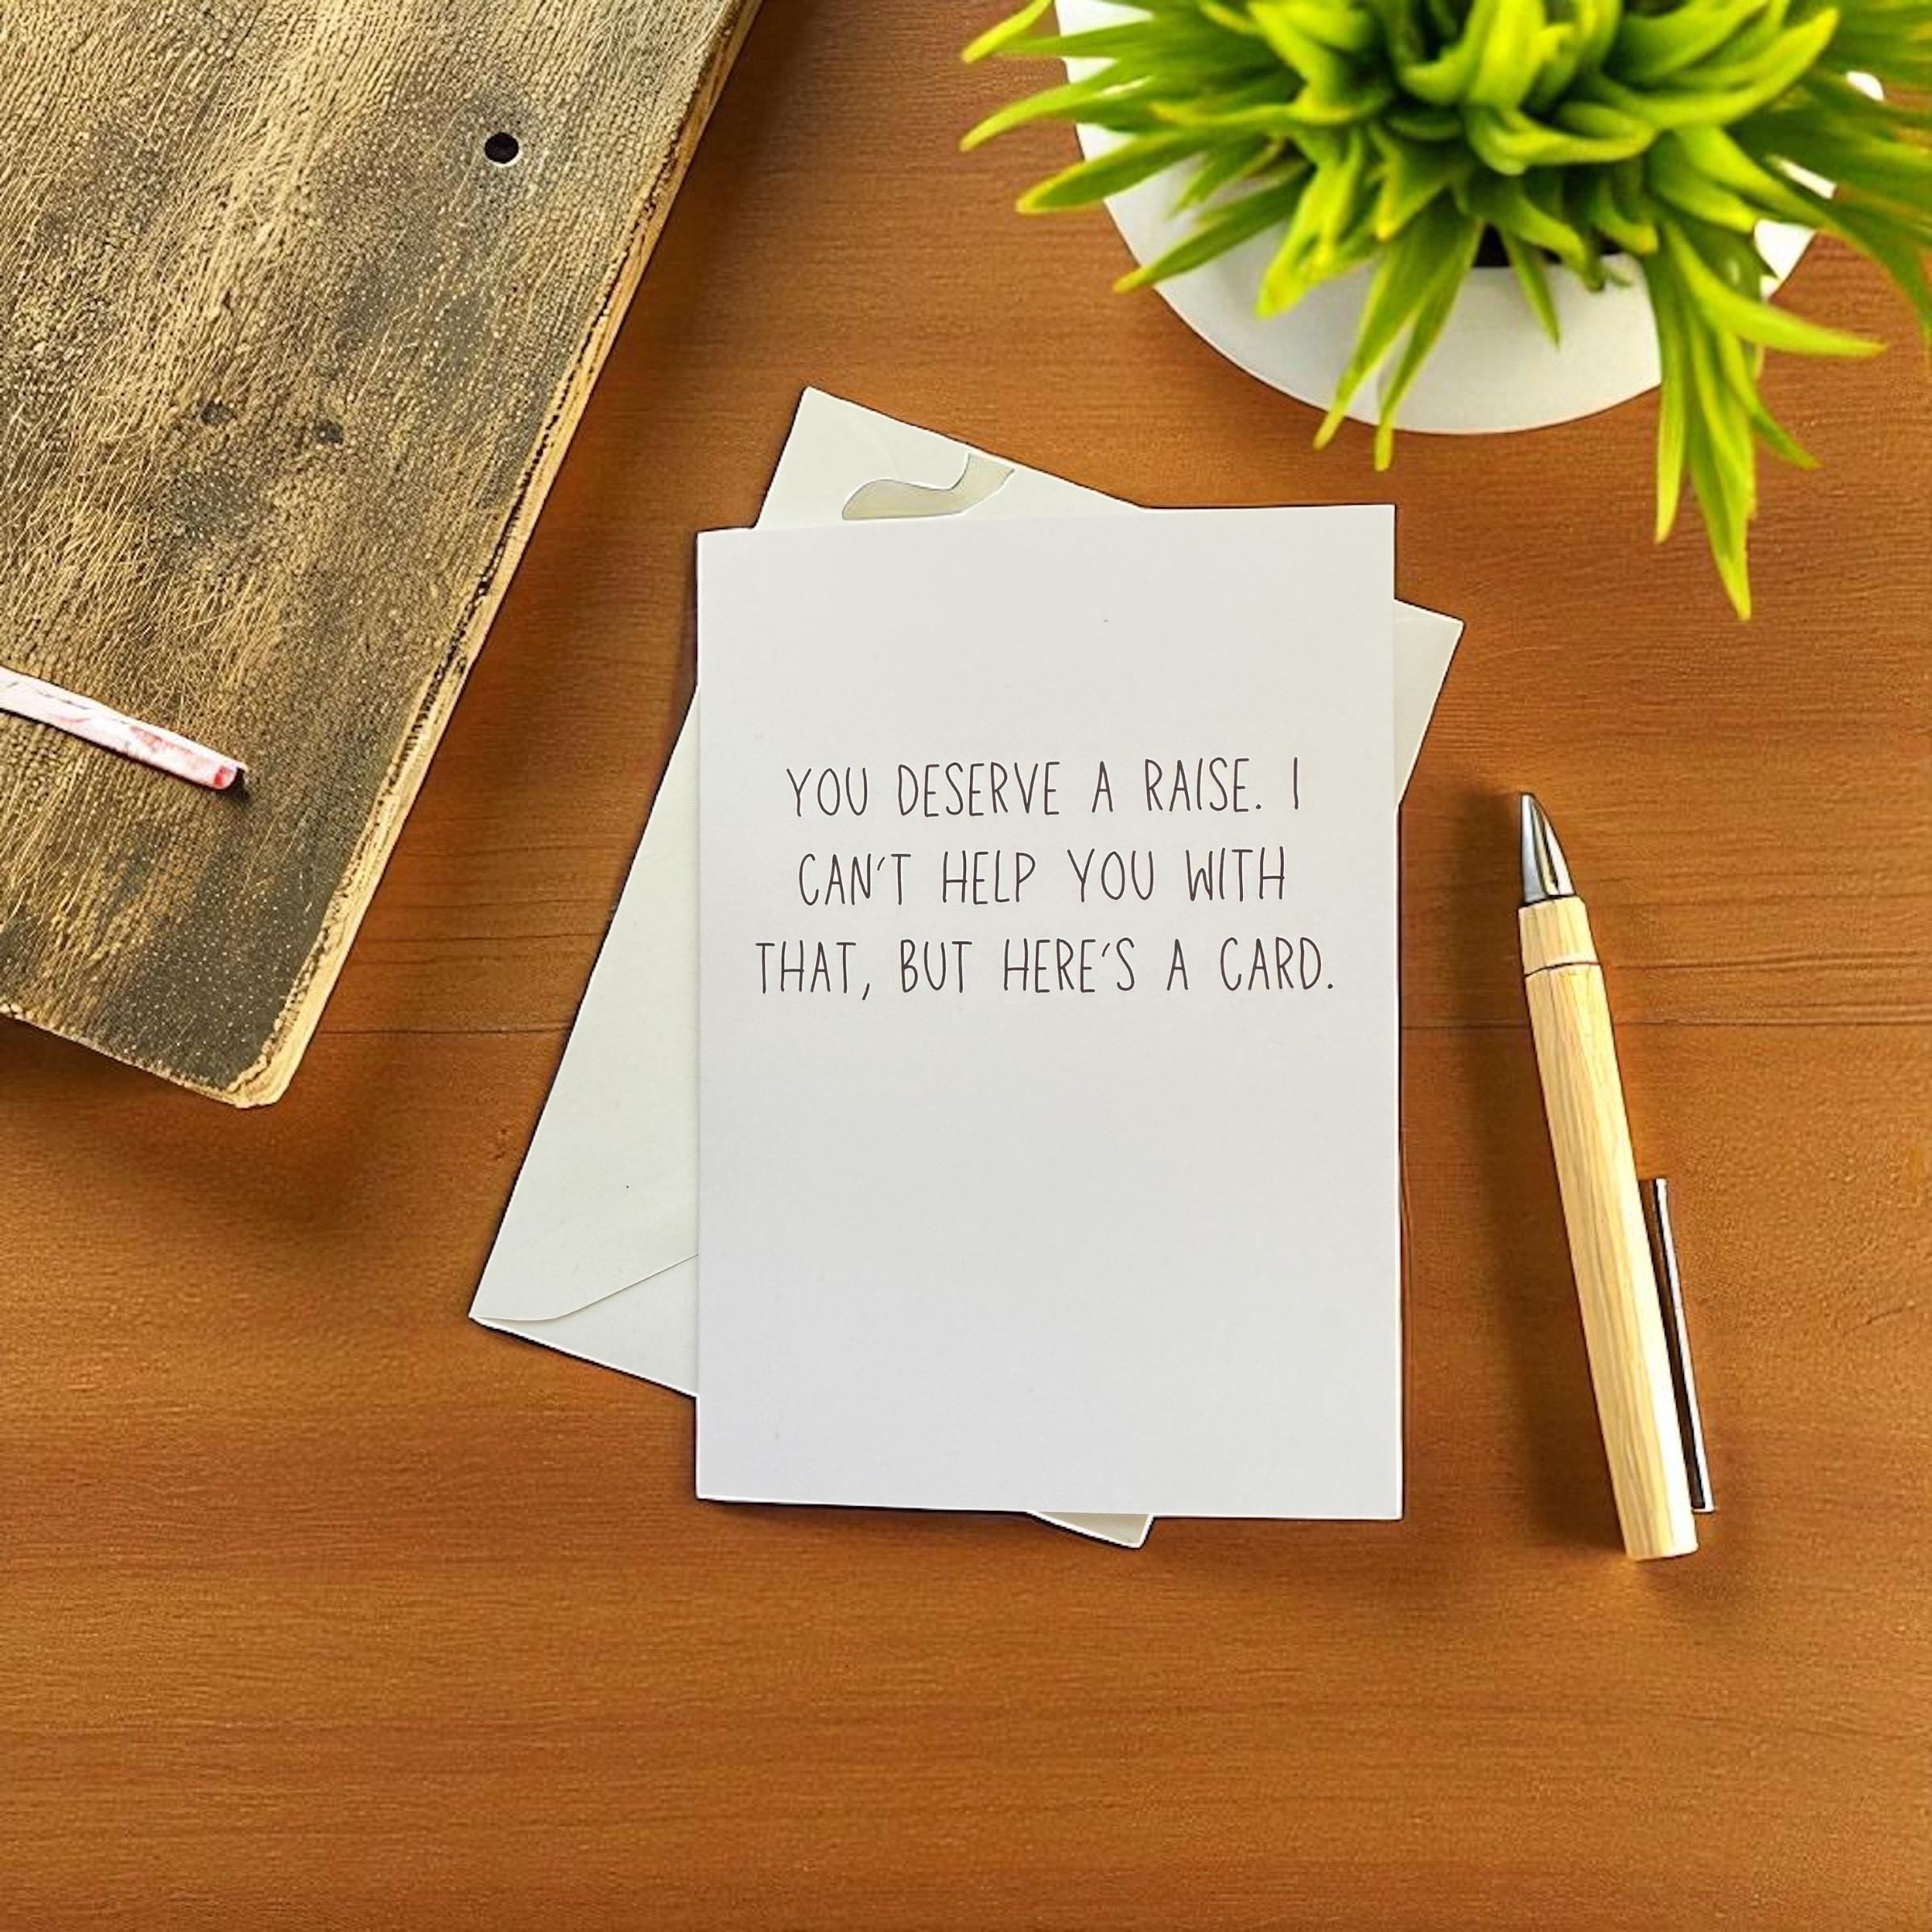 YOU DESERVE A RAISE. I
CAN'T HELP YOU WITH
THAT, BUT HERE'S A CARD.